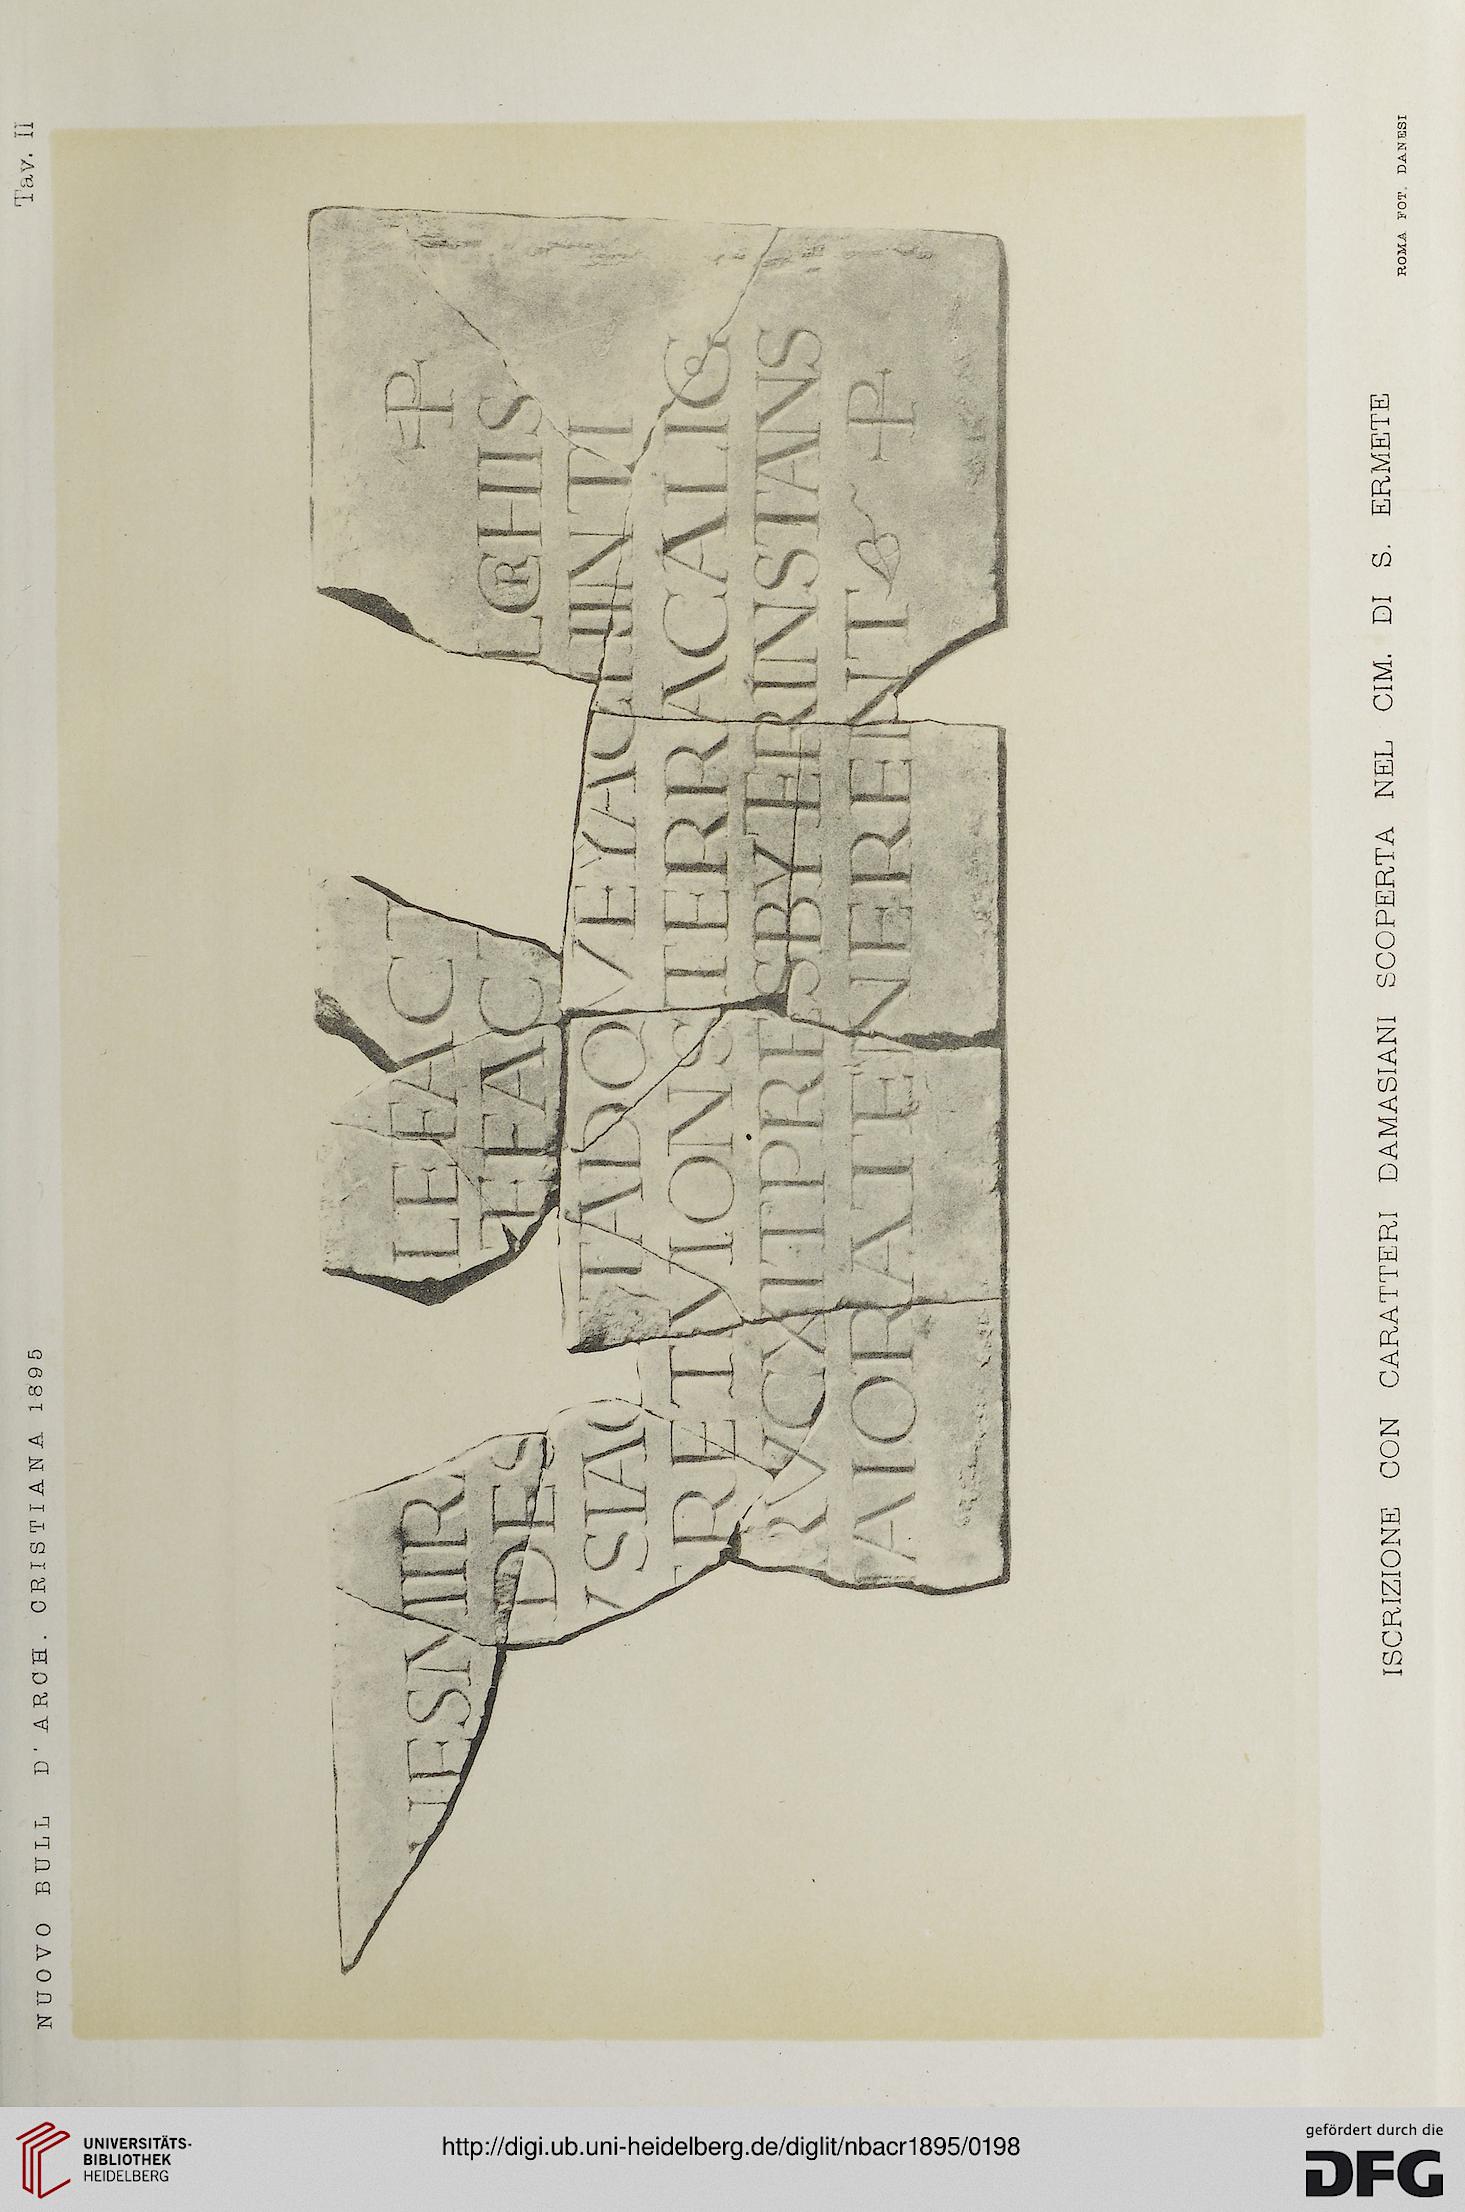 NUOVO BULL D'ARCH. CRISTIANA 1895
Tav. II
IESMIR LEFACT ⳨
DES EFACT LRHIS
SIA TABQVEYACHINTI
TRETVIONSTERRACALIG
RVCXITPRESBYTERINSTANS
AIORATENERENT ⳨
ISCRIZIONE CON CARATTERI DAMASIANI SCOPERTA NEL CIM. DI S. ERMETE
ROMA FOT. DANESI
UNIVERSITÄTS-
BIBLIOTHEK
HEIDELBERG
http://digi.ub.uni-heidelberg.de/diglit/nbacr1895/0198
gefördert durch die
DFG